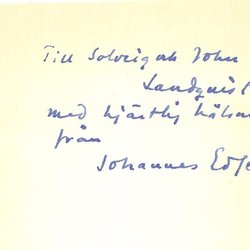 Till Solveig och John
Landquist
med hjärtlig hälsn
från
Johannes Edfe